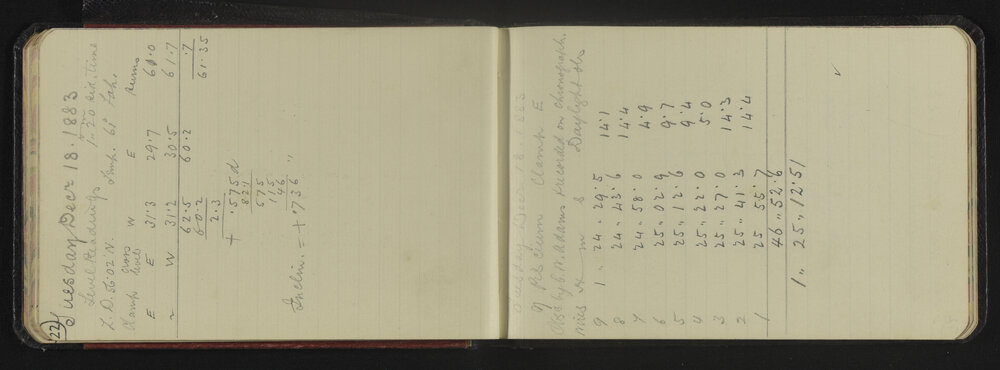 22
Tuesday Decr 18. 1883
Level Readings 1h 20m Sid. time
L.D. 5602 N. Temp. 61° Fah.
Clamp Cross level W E Sums
E E 31.3 29.7 61.0
" W 31.2 30.5 61.7
62.5 60.2 .7
60.2 61.35
2.3
+ .575 d
821
575
115
46
Inclin. = + .736 "
Tuesday Decr 18. 1883
η Piscium Clamp E
Obsd by C.A. Adams & recorded on chronograph.
Wires h m s Daylight obs
9 1 " 24 " 29.5 14.1
8 24 " 43.6 14.4
7 24 " 58.0 4.9
6 25 " 02.9 9.7
5 25 " 12.6 9.4
4 25 " 22.0 5.0
3 25 " 27.0 14.3
2 25 " 41.3 14.4
1 25 55.7
46 " 52.6
1 " 25 " 12.51